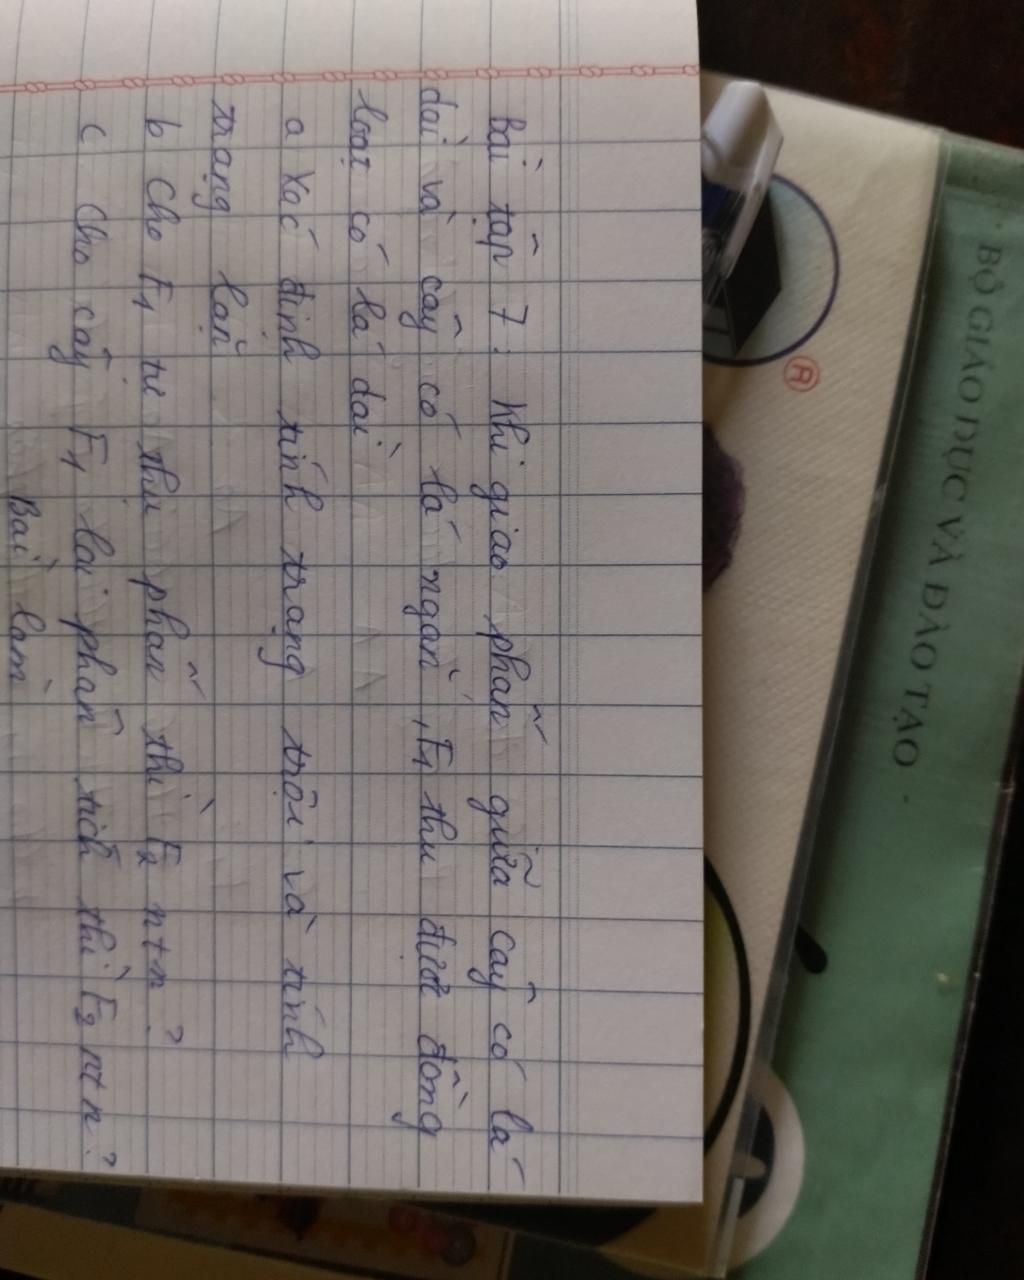 Bài tập 7: Khi giao phấn giữa cây có lá
dài và cây có lá ngắn, F1 thu được đồng
loạt có lá dài
a Xác định tính trạng trội và tính
trạng lặn
b Cho F1 tự thụ phấn thì F2 ntn?
c Cho cây F1 lai phân tích thì F2 ntn?
Bài làm
BỘ GIÁO DỤC VÀ ĐÀO TẠO
®